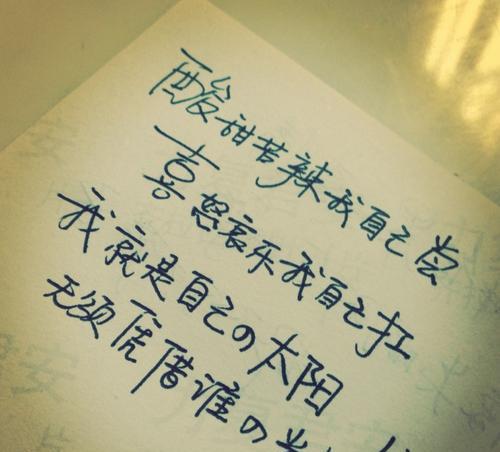 酸甜苦辣我自己尝
喜怒哀乐我自己扛
我就是自己の太阳
无须凭借谁の光